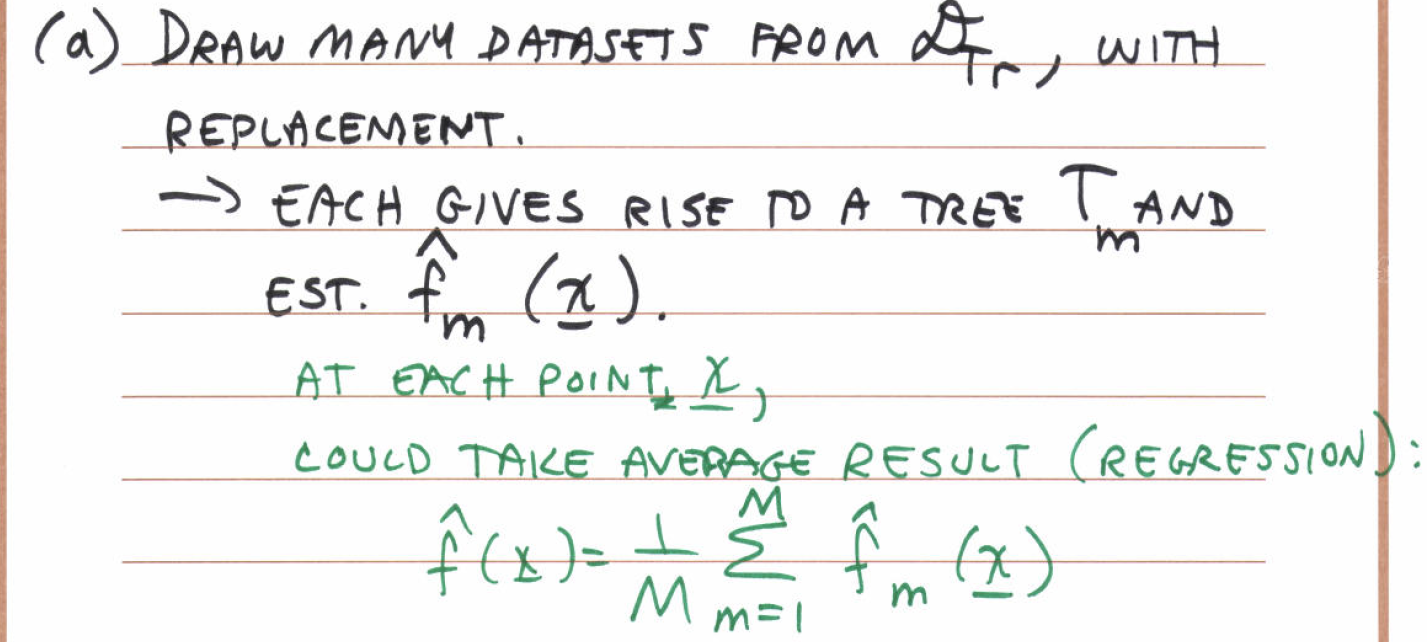 (a) DRAW MANY DATASETS FROM 𝒟_Tr, WITH
REPLACEMENT.
→ EACH GIVES RISE TO A TREE T_m AND
EST. f̂_m (x̲).
AT EACH POINT, x̲,
COULD TAKE AVERAGE RESULT (REGRESSION):
f̂(x̲) = 1/M Σ_{m=1}^{M} f̂_m (x̲)